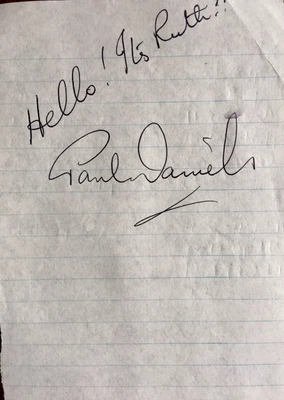 Hello! It's Ruth!!
Paul Daniels